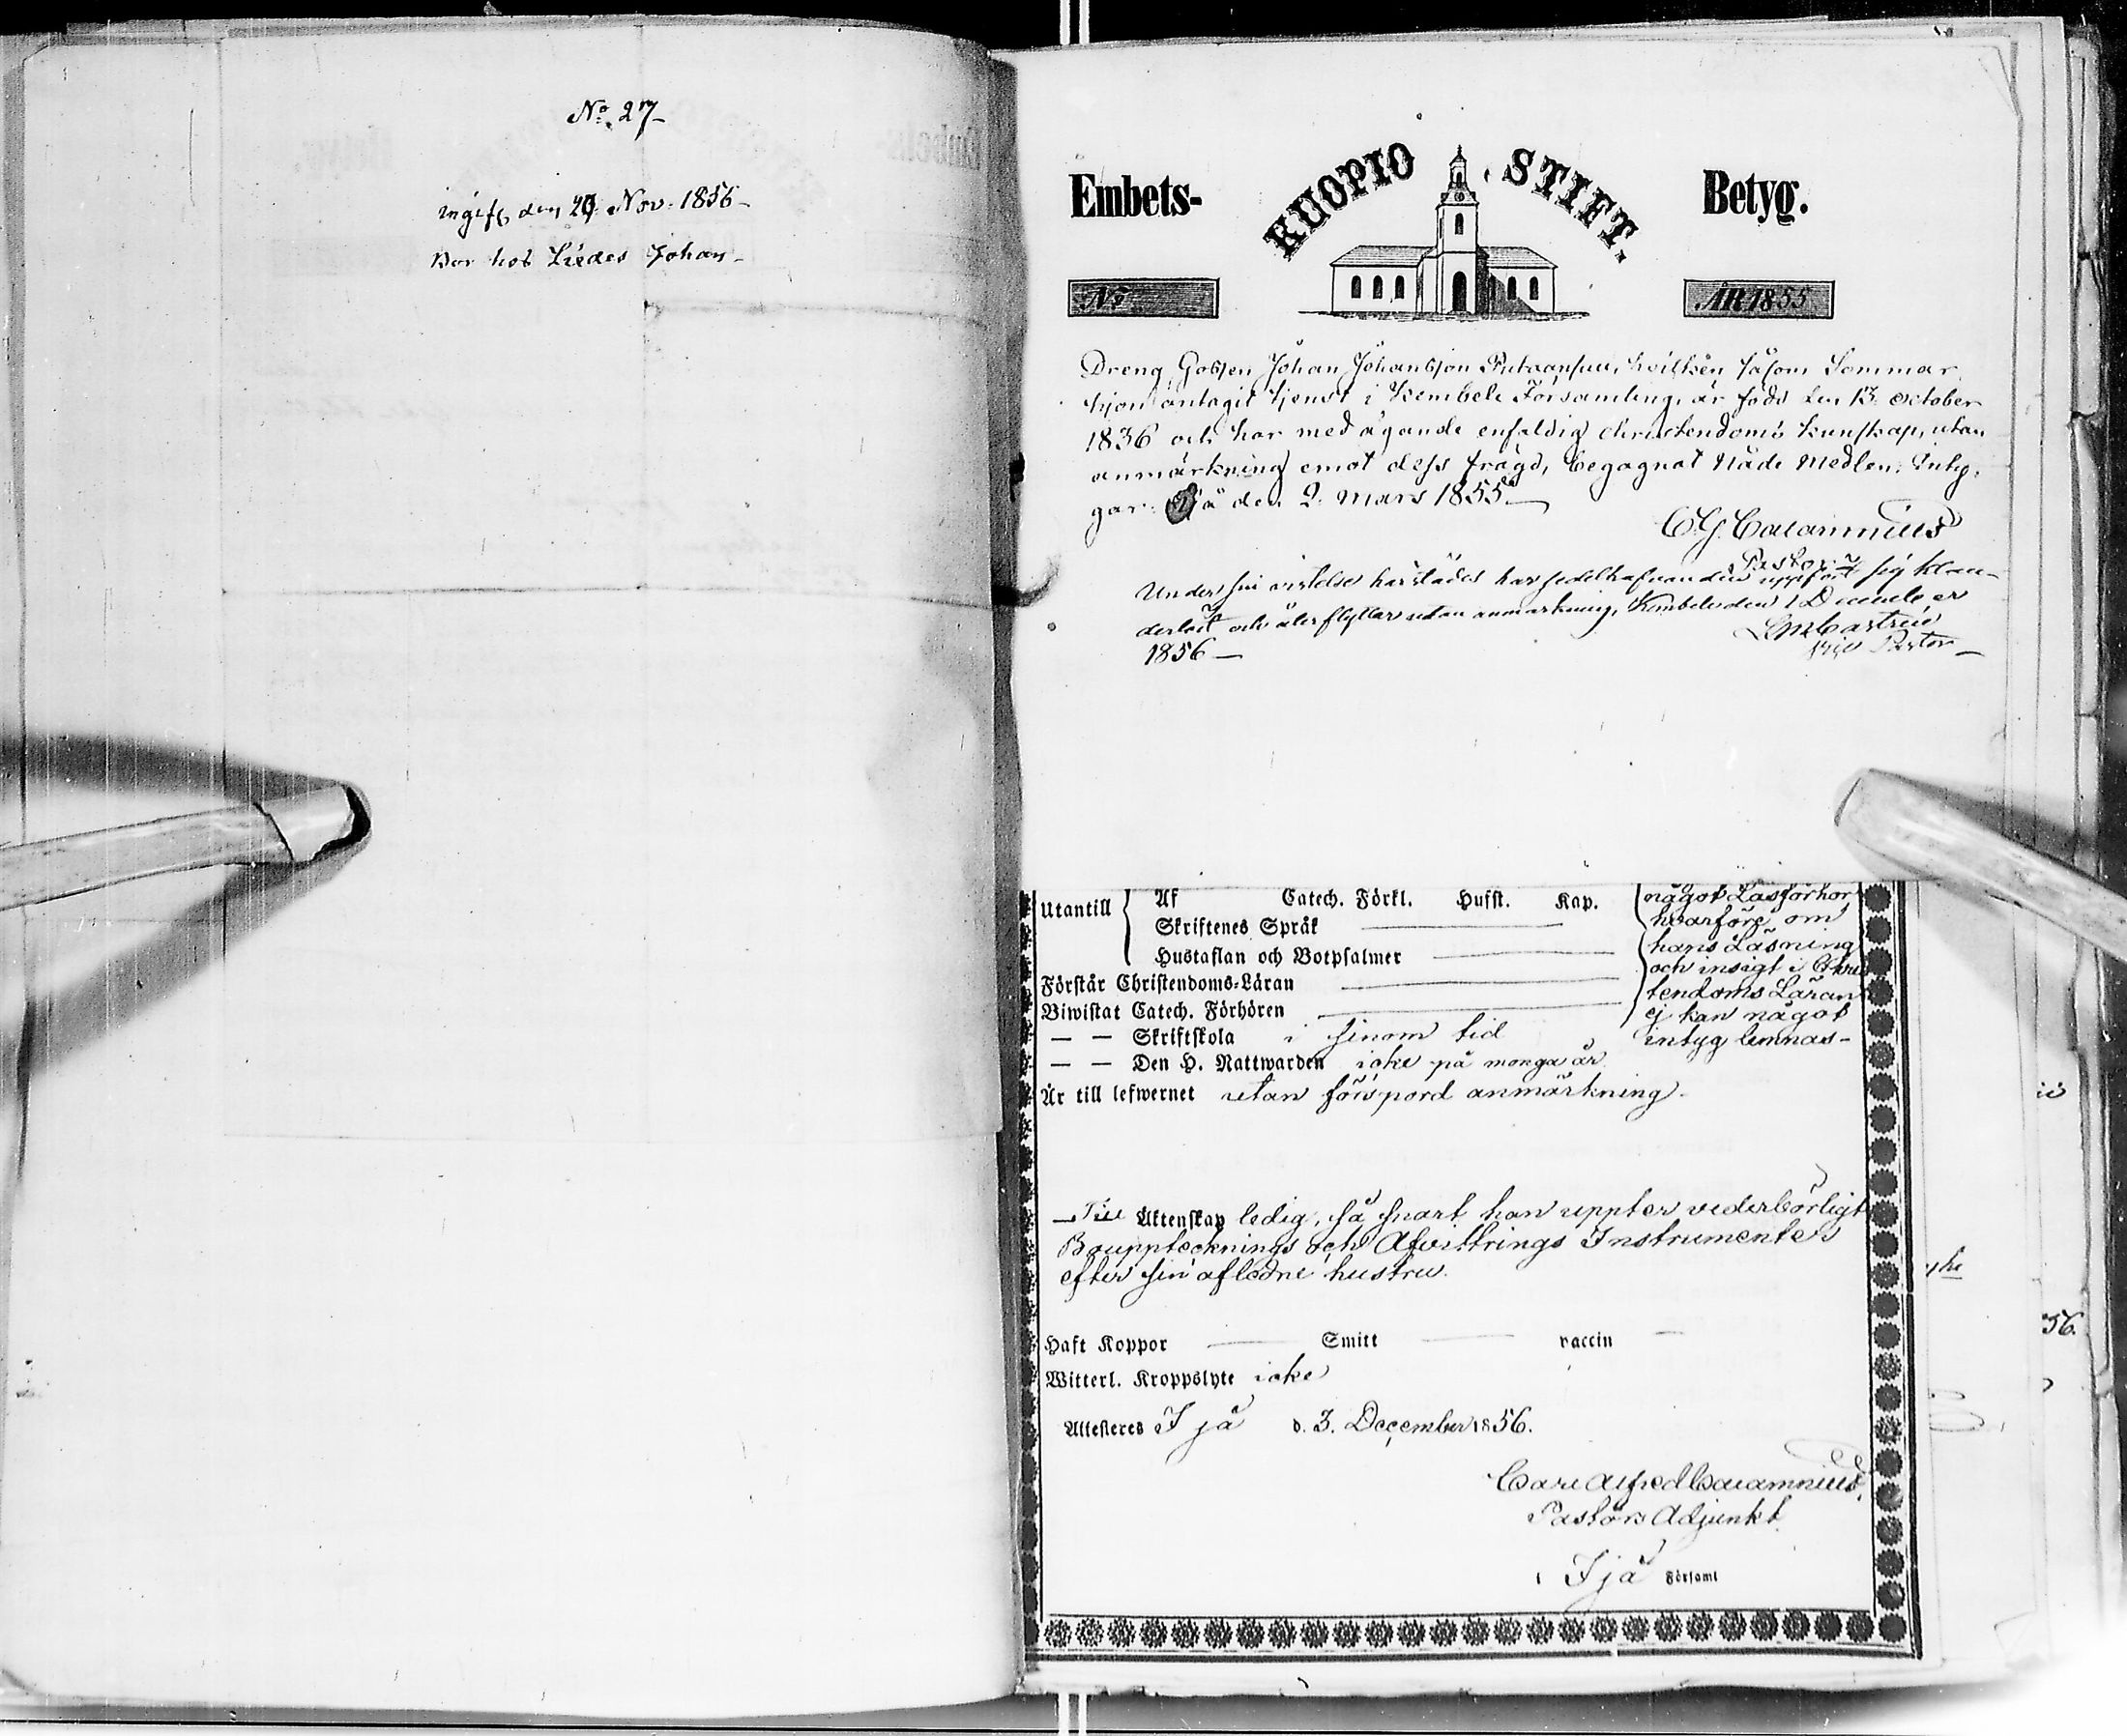 No. 27
ingift den 29 Nov. 1856
Bor hos Liedes Johan
Embets-
KUOPIO STIFT.
Betyg.
No
ÅR 1855
Dreng Gossen Johan Johansson, hvilken såsom Sommar
hjon antagit tjenst i Kembele Församling, är född den 13 October
1836 och har med ägande enfaldig christendoms kunskap, utan
anmärkning emot dess frägd, begagnat Nåde Medlen. Inty-
gar. Ijå den 2. Mars 1855.
C. G. Calamnius
Pastor
Under sin vistelse härstädes har sedelhafvanden uppfört sig klan-
derlöst och återflyttar utan anmärkning, Kembele den 1 December
1856 —
Castrén
Pastor —
Utantill Af Catech. Förkl. Husst. Kap.
Skriftenes Språk
Hustaflan och Botpsalmer
Förstår Christendoms-Läran
Biwistat Catech. Förhören
något Läsförhör
hvarföre om
hans Läsning
och insigt i Chris
tendoms Läran
ej kan något
intyg lemnas -
— — Skriftskola i sinom tid
— — Den H. Nattwarden icke på monga år
Är till lefwernet utan försspord anmärkning.
Till Äktenskap ledig, så snart han uppter vederbörligt
Boupptecknings och Afvittrings Instrumenter
efter sin afledne hustru.
Haft Koppor — Smitt — vaccin —
Witterl. Kroppslyte icke
Attesteres Ijå d. 3. December 1856.
Carl Alfred Calamnius,
Pastors Adjunkt
i Ijå Församl
56.